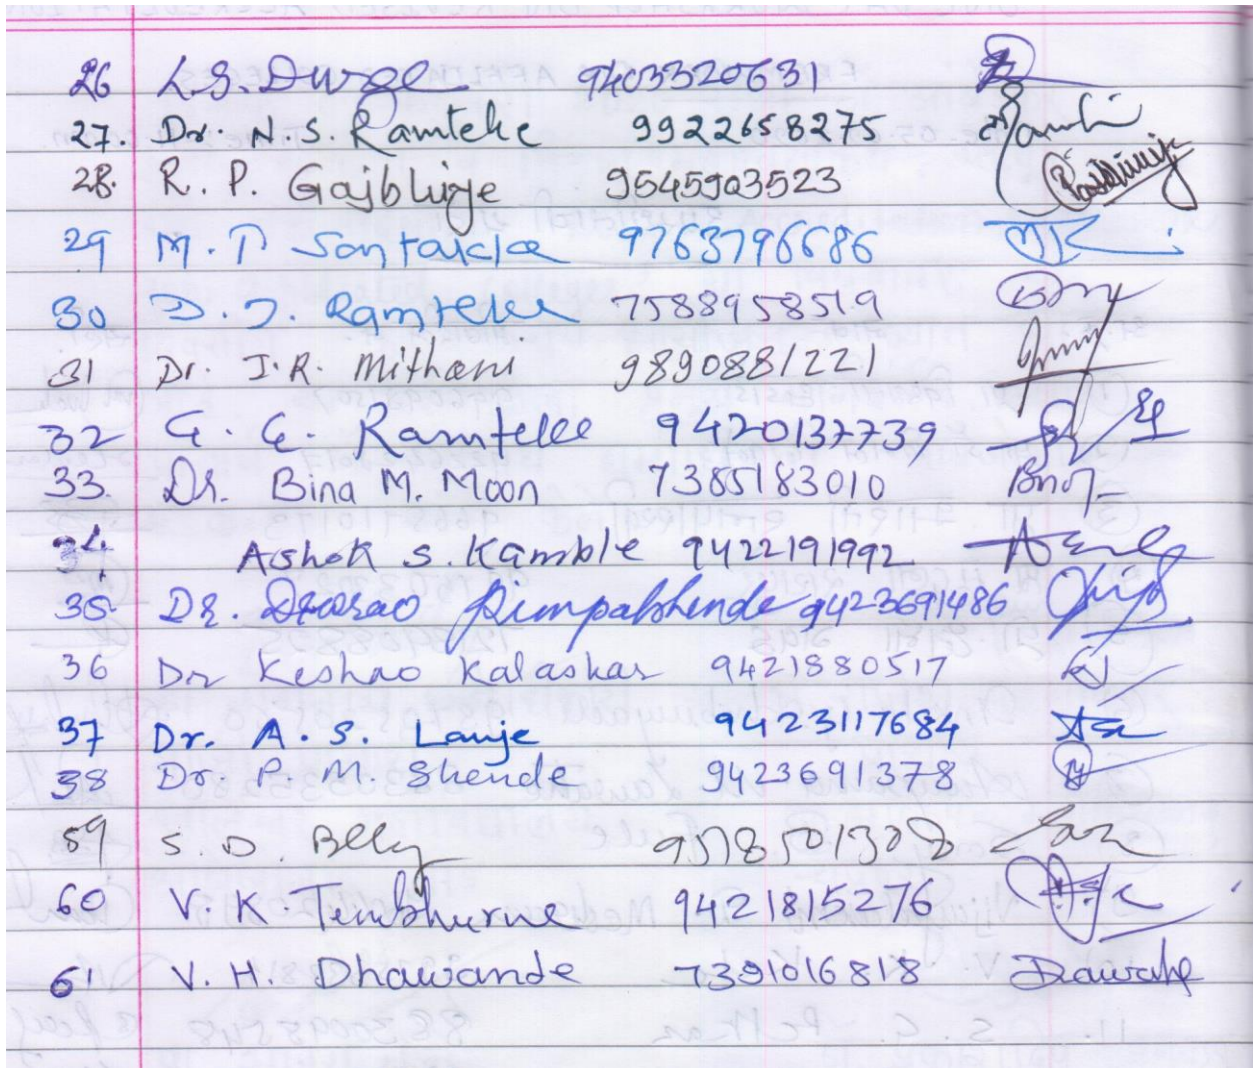 26 L.S. Durge 9403320631
27. Dr. N. S. Ramteke 9922658275
28. R. P. Gajbhiye 9545903523
29 M. T Santakke 9763796686
30 D. J. Ramteke 7588958519
31 Dr. J. R. Mithani 9890881221
32 G. G. Ramteke 9420137739
33. Dr. Bina M. Moon 7385183010
34. Ashok S. Kamble 9422191992
35 DR. Deorao Pimpalshende 9423691486
36 Dr Keshao Kalaskar 9421880517
37 Dr. A. S. Lanje 9423117684
38 Dr. P. M. Shende 9423691378
59 S. D. 
60 V. K. Tembhurne 9421815276
61 V. H. Dhawande 7391016818 Dawande